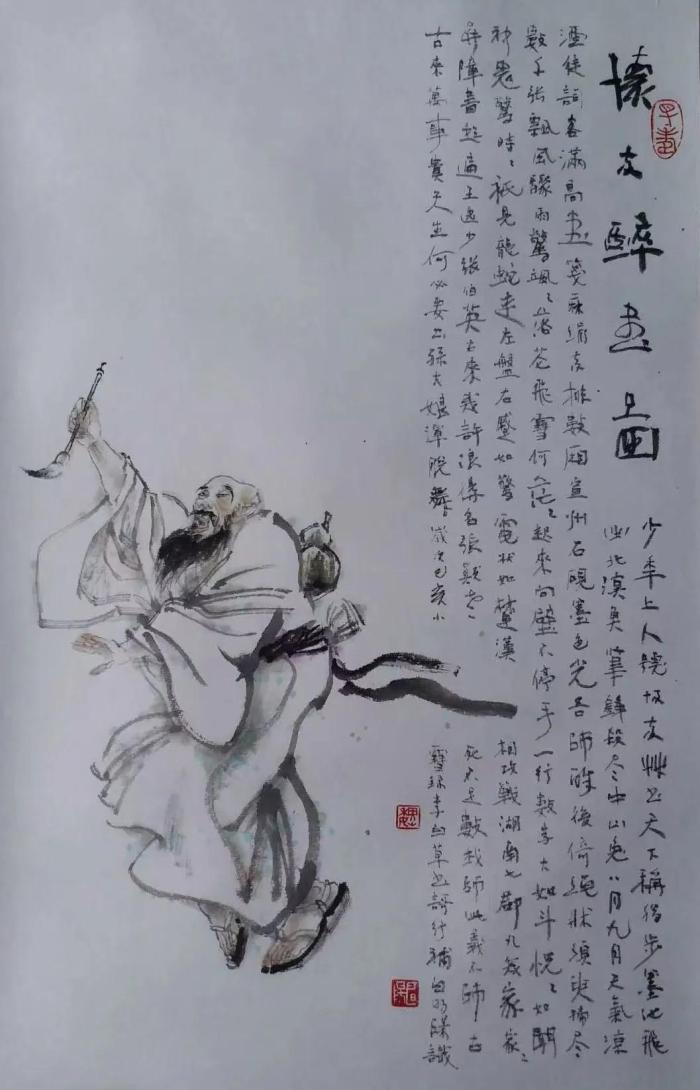 懷素醉書圖
少年上人號懷素草書天下稱獨步墨池飛
出北溟魚筆鋒殺盡中山兔八月九月天氣涼
酒徒詞客滿高堂箋麻絹素排數廂宣州石硯墨色光吾師醉後倚繩床須臾掃盡
數千張飄風驟雨驚颯々落花飛雪何茫々起來向壁不停手一行數字大如斗怳々如聞
神鬼驚時々祇見龍蛇走左盤右蹙如驚電狀如楚漢相攻戰湖南七郡凡幾家家々
屏障書題遍王逸少張伯英古來幾許浪得名張顛老死不足數我師此義不師古
古來萬事貴天生何必要公孫大娘渾脫舞歲次己亥小雪錄李白草書歌行補白